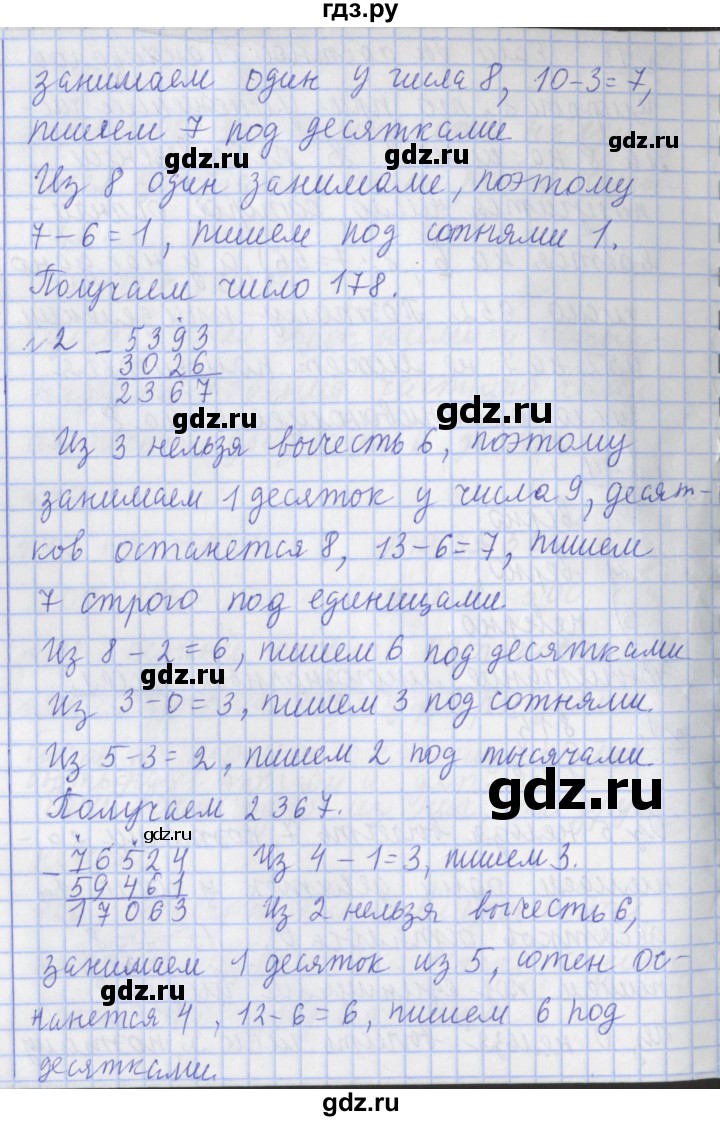 гдз.ру
занимаем один у числа 8, 10-3=7,
пишем 7 под десятками
gdz.ru gdz.ru
Из 8 один занимаме, поэтому
7-6=1, пишем под сотнями 1.
Получаем число 178.
№2 - 5393
3026
2367
gdz.ru gdz.ru
Из 3 нельзя вычесть 6, поэтому
занимаем 1 десяток у числа 9, десят-
ков останется 8, 13-6=7, пишем
7 строго под единицами.
Из 8-2=6, пишем 6 под десятками
gdz.ru
Из 3-0=3, пишем 3 под сотнями.
Из 5-3=2, пишем 2 под тысячами.
gdz.ru
Получаем 2367.
gdz.ru
- 76524 Из 4-1=3, пишем 3.
59461
17063 Из 2 нельзя вычесть 6,
занимаем 1 десяток из 5, сотен ос-
gdz.ru
танется 4, 12-6=6, пишем 6 под
gdz.ru
десятками.
gdz.ru